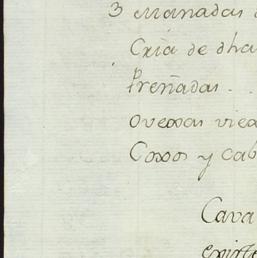 3 Manadas
Cria de dha
Preñadas . .
Ovexas viex
Coxos y cab
Cava
existe